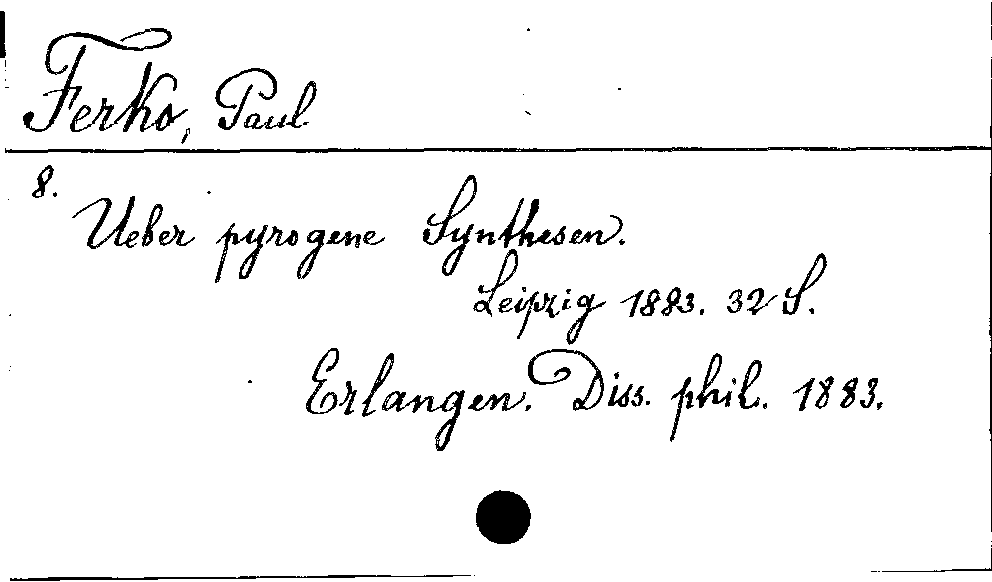 Ferko, Paul
8.
Ueber pyrogene Synthesen.
Leipzig 1883. 32 S.
Erlangen. Diss. phil. 1883.